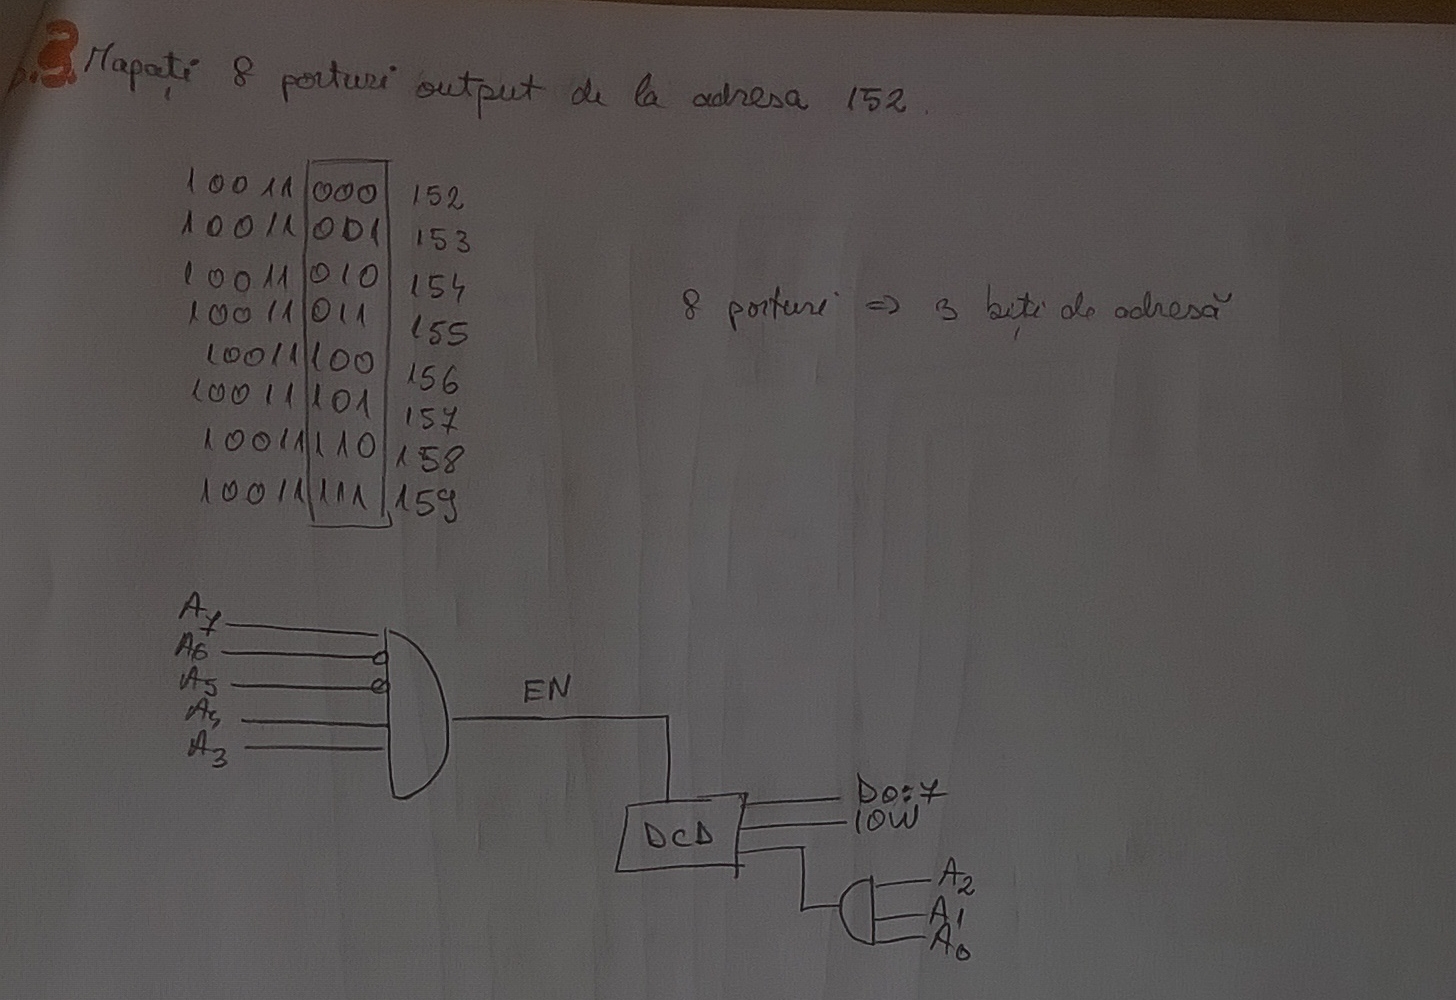 p.3. Mapați 8 porturi output de la adresa 152.
10011 000 152
10011 001 153
10011 010 154
10011 011 155
10011 100 156
10011 101 157
10011 110 158
10011 111 159
8 porturi => 3 biți de adresă
A7
A6
A5
A4
A3
EN
DCD
D0:7
IOW
A2
A1
A0